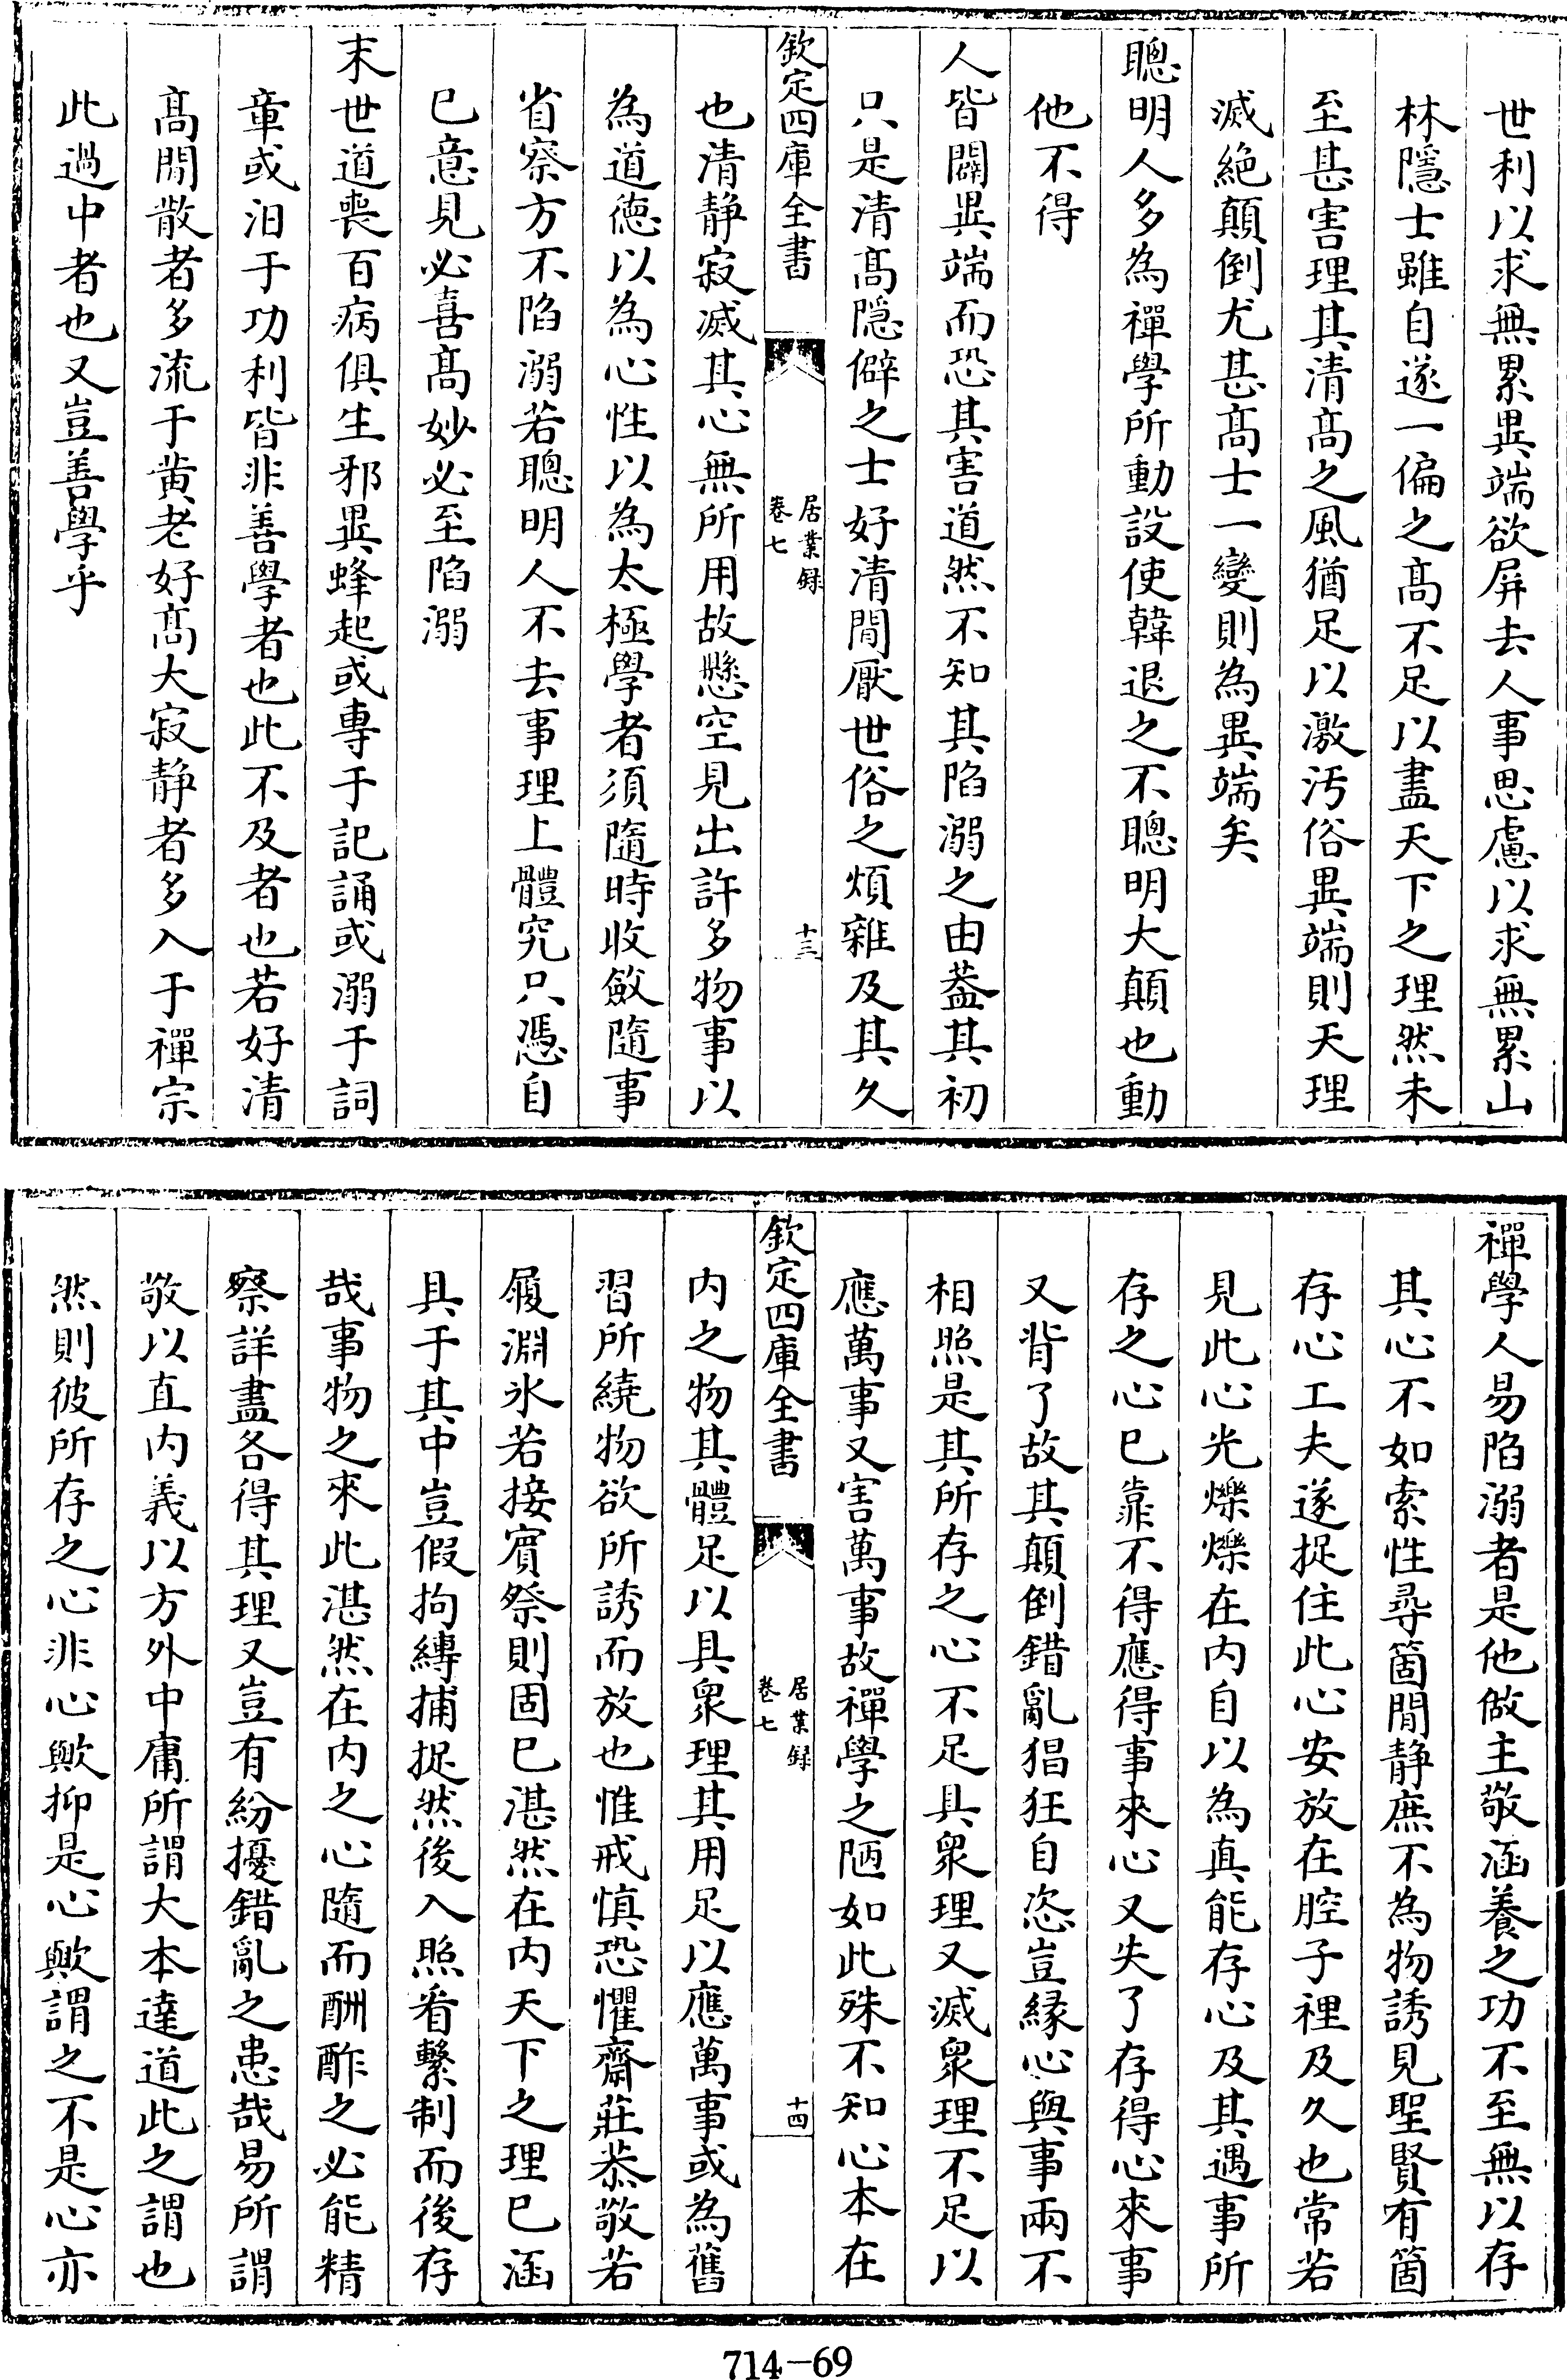 世利以求無累異端欲屏去人事思慮以求無累山
林隱士雖自遂一偏之髙不足以盡天下之理然未
至甚害理其清髙之風猶足以激汚俗異端則天理
滅絶顛倒尤甚髙士一變則為異端矣
聰明人多為禪學所動設使韓退之不聰明大顛也動
他不得
人皆闢異端而恐其害道然不知其陷溺之由葢其初
只是清髙隠僻之士好清閒厭世俗之煩雜及其久
欽定四庫全書
居業録
卷七
十三
也清静寂滅其心無所用故懸空見出許多物事以
為道徳以為心性以為太極學者須隨時收斂隨事
省察方不陷溺若聰明人不去事理上體究只憑自
已意見必喜髙妙必至陷溺
末世道喪百病俱生邪異蜂起或專于記誦或溺于詞
章或汨于功利皆非善學者也此不及者也若好清
髙閒散者多流于黄老好髙大寂静者多入于禪宗
此過中者也又豈善學乎
禪學人易陷溺者是他做主敬涵養之功不至無以存
其心不如索性尋箇閒静庶不為物誘見聖賢有箇
存心工夫遂捉住此心安放在腔子裡及久也常若
見此心光爍爍在内自以為真能存心及其遇事所
存之心已靠不得應得事來心又失了存得心來事
又背了故其顛倒錯亂猖狂自恣豈緣心與事兩不
相照是其所存之心不足具衆理又滅衆理不足以
應萬事又害萬事故禪學之陋如此殊不知心本在
欽定四庫全書
居業録
卷七
十四
内之物其體足以具衆理其用足以應萬事或為舊
習所繞物欲所誘而放也惟戒慎恐懼齋莊恭敬若
履淵氷若接賓祭則固已湛然在内天下之理已涵
具于其中豈假拘縛捕捉然後入照看繫制而後存
哉事物之來此湛然在内之心隨而酬酢之必能精
察詳盡各得其理又豈有紛擾錯亂之患哉易所謂
敬以直内義以方外中庸所謂大本達道此之謂也
然則彼所存之心非心歟抑是心歟謂之不是心亦
714-69